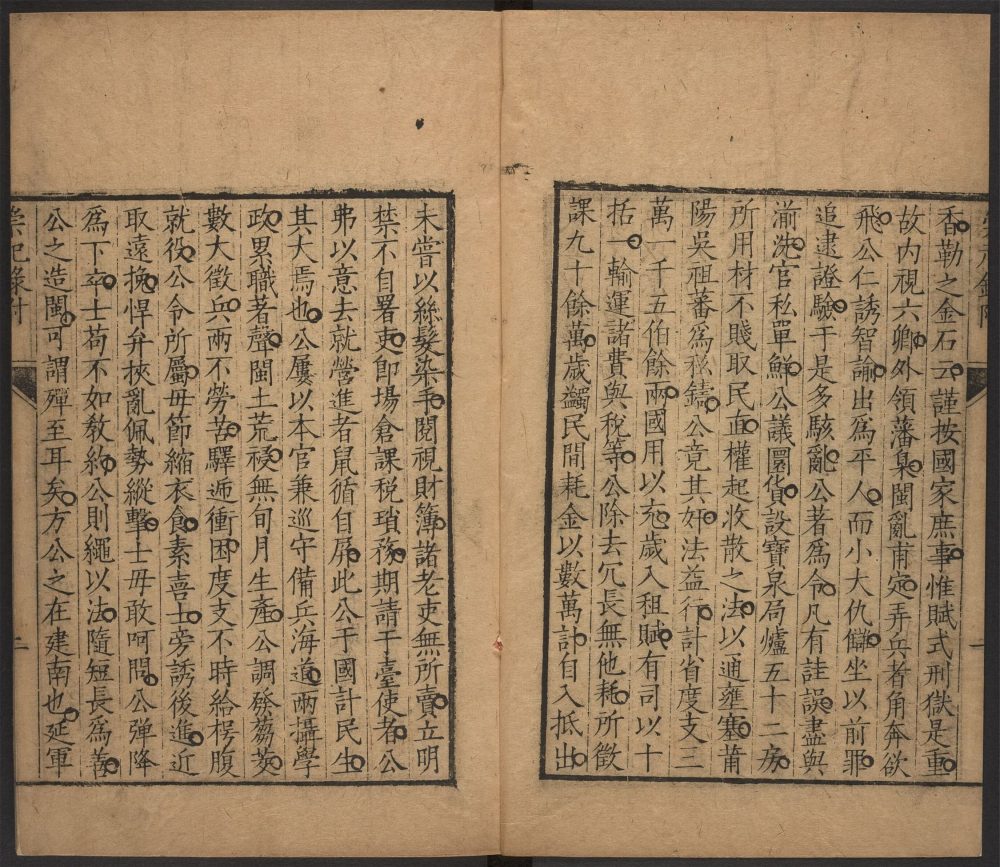 香勒之金石云謹按國家庶事惟賦式刑獄是重
故內視六卿外領藩臬閩亂甫定弄兵者角奔欲
飛公仁誘智論出為平人而小大仇讎坐以前罪
追逮證驗于是多駭亂公著為令凡有詿誤盡與
湔洗官私單鮮公議圜貨設寶泉局爐五十二房
所用材不賤取民直權起收散之法以通壅塞莆
陽吳祖蕃為私鑄公竟其奸法益行計省度支三
萬一千五伯餘兩國用以充歲入租賦有司以十
括一輸運諸費與稅等公除去冗長無他耗所徵
課九十餘萬歲蠲民間耗金以數萬計自入抵出
一
未嘗以絲髮染手閱視財簿諸老吏無所賣立明
禁不自署吏即場倉課稅瑣務期請于臺使者公
弗以意去就營進者鼠循自屏此公于國計民生
其大焉也公屢以本官兼巡守備兵海道兩攝學
政累職著聲閩土荒祲無旬月生產公調發芻茭
數大徵兵兩不勞苦驛遞衝困度支不時給楞腹
就役公令所屬毋節縮衣食素喜士旁誘後進近
取遠挽悍弁挾亂佩勢縱擊士毋敢呵問公彈降
為下卒士苟不如教約公則繩以法隨短長為善
公之造閩可謂殫至耳矣方公之在建南也延軍
崇祀錄附
二